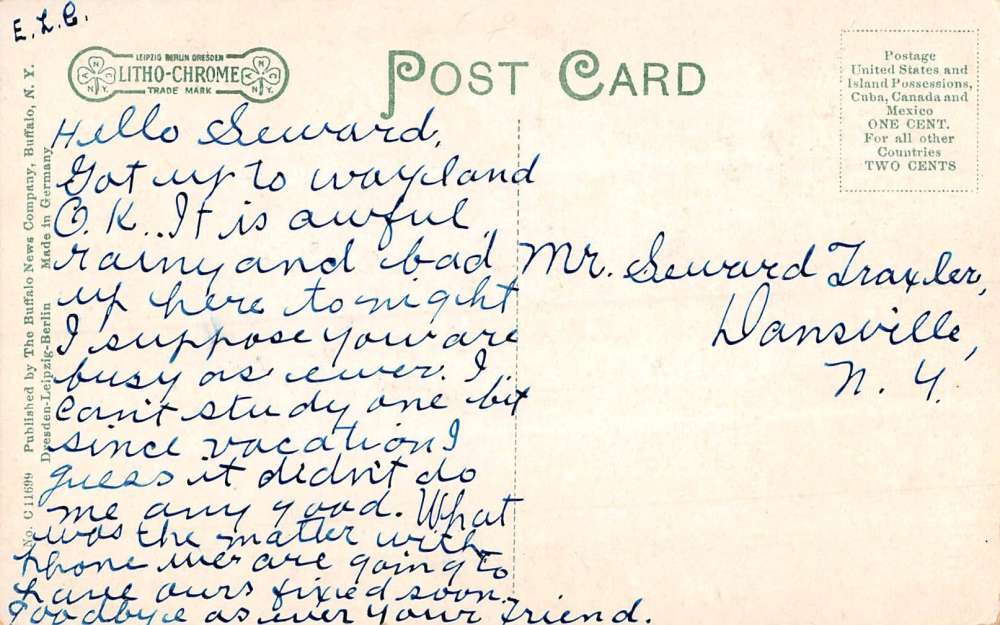 E.L.C.
LEIPZIG BERLIN DRESDEN
LITHO-CHROME
TRADE MARK
N
C
N
Y.
POST CARD
Postage
United States and
Island Possessions,
Cuba, Canada and
Mexico
ONE CENT.
For all other
Countries
TWO CENTS
No. C 11699 Published by The Buffalo News Company, Buffalo, N. Y.
Dresden-Leipzig-Berlin Made in Germany
Hello Seward,
Got up to wayland
O.K.. It is awful
rainy and bad
up here tonight
I suppose you are
busy as ever. I
can't study one bit
since vacation I
guess it didn't do
me any good. What
was the matter with
phone we are going to
have ours fixed soon.
Goodbye as ever your friend.
Mr. Seward Traxler,
Dansville,
N. Y.